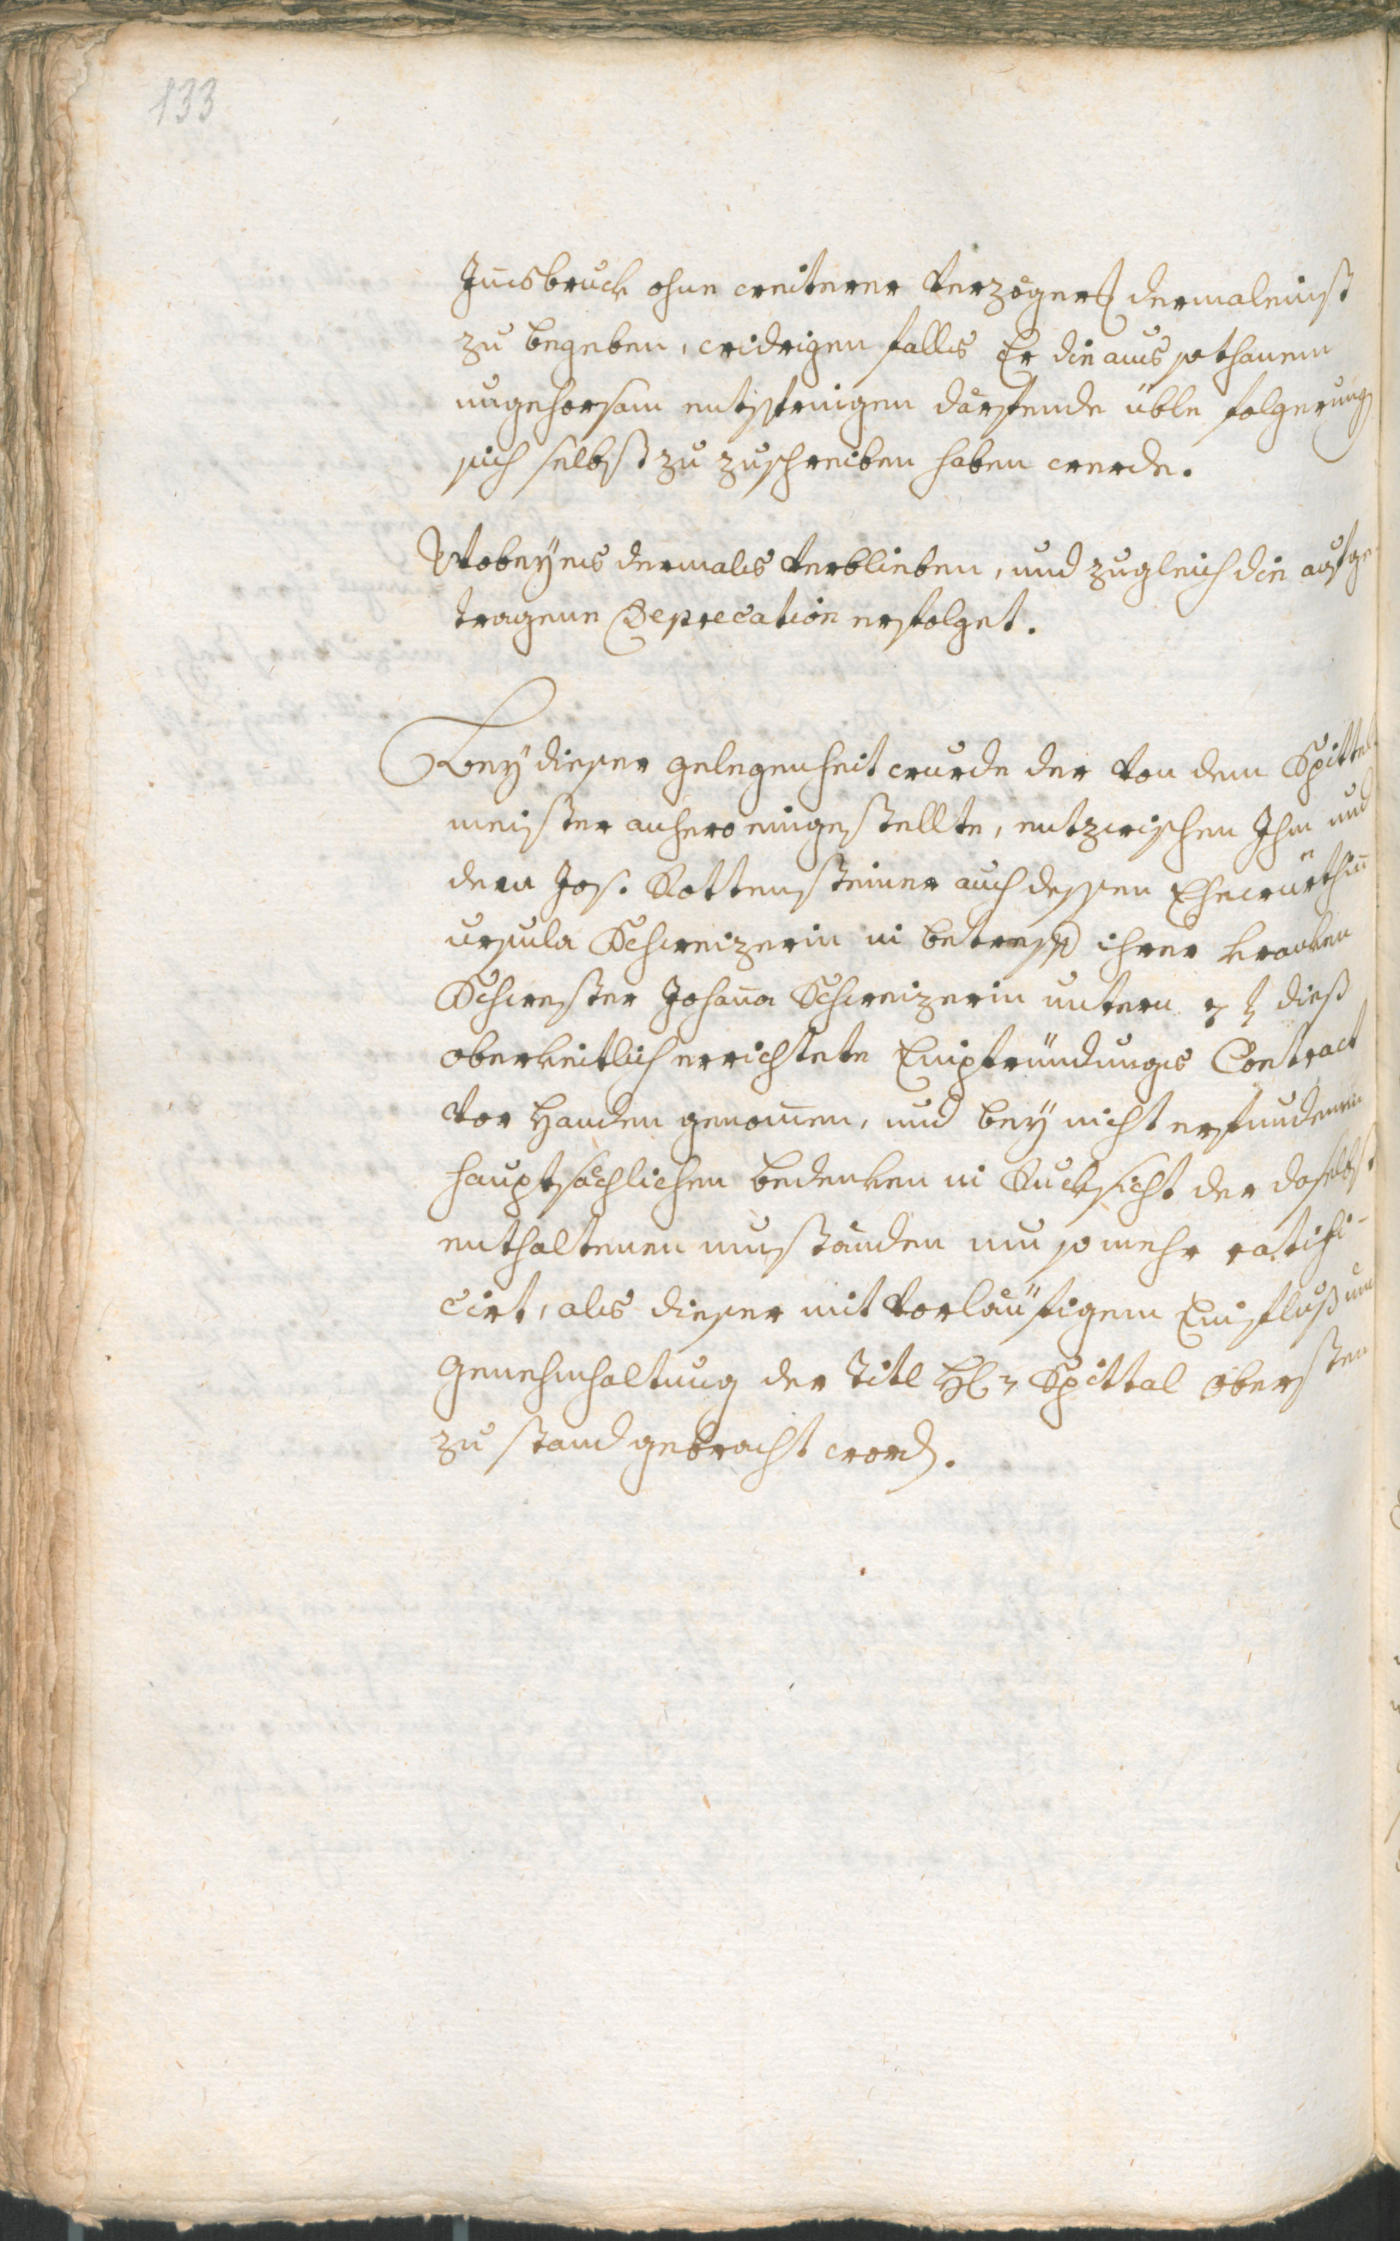 133
Innsbruck ohne weiterer Verzögerung dermaleinst
zu begeben, widrigen falls Er die aus sothanem
ungehorsam entspringen därfende üble folgerung
sich selbst zu zuschreiben haben werde.
Wobey es dermals verblieben, und zugleich die aufge
tragene Deprecation erfolget.
Bey dieser gelegenheit wurde der von dem Spittal
meister anhero eingestellte, entzwischen Ihm und
dem Jos. Rottensteiner auch dessen Ehewürthin
ursula Schweizerin in betreff ihrer kranken
Schwester Johanna Schweizerin untern dieß
oberkeitlich errichtete Einpfründungs Contract
vor Handen genommen, und bey nicht erfundenen
hauptsächlichen bedenken in Rucksicht der daselbst
enthaltenen umständen um so mehr ratifi-
cirt, als dieser mit vorläufigem Einfluß und
Genehmhaltung der Titl H: Spittal obersten
zu stand gebracht word.